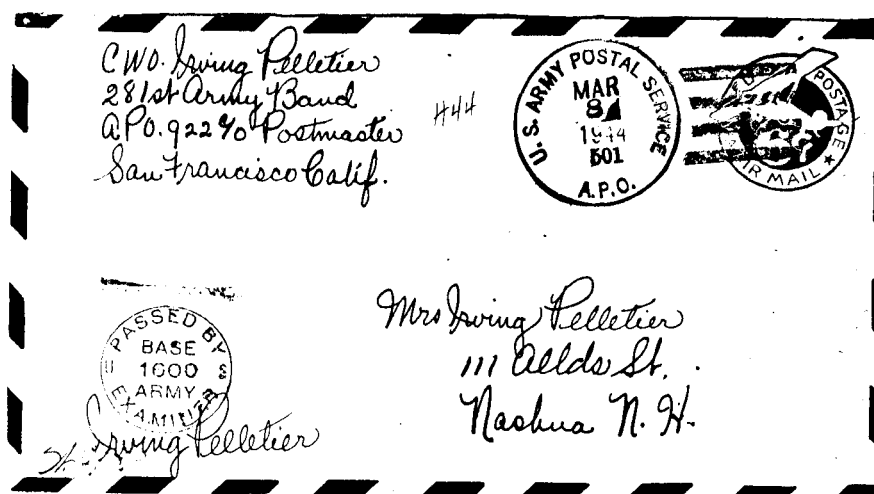 CWO. Irving Pelletier
281st Army Band
A.P.O. 922 c/o Postmaster
San Francisco Calif.
#44
U.S. ARMY POSTAL SERVICE
MAR
8
1944
501
A.P.O.
POSTAGE
AIR MAIL
PASSED BY
BASE
1600
ARMY
EXAMINER
Irving Pelletier
Mrs Irving Pelletier
111 Allds St.
Nashua N. H.